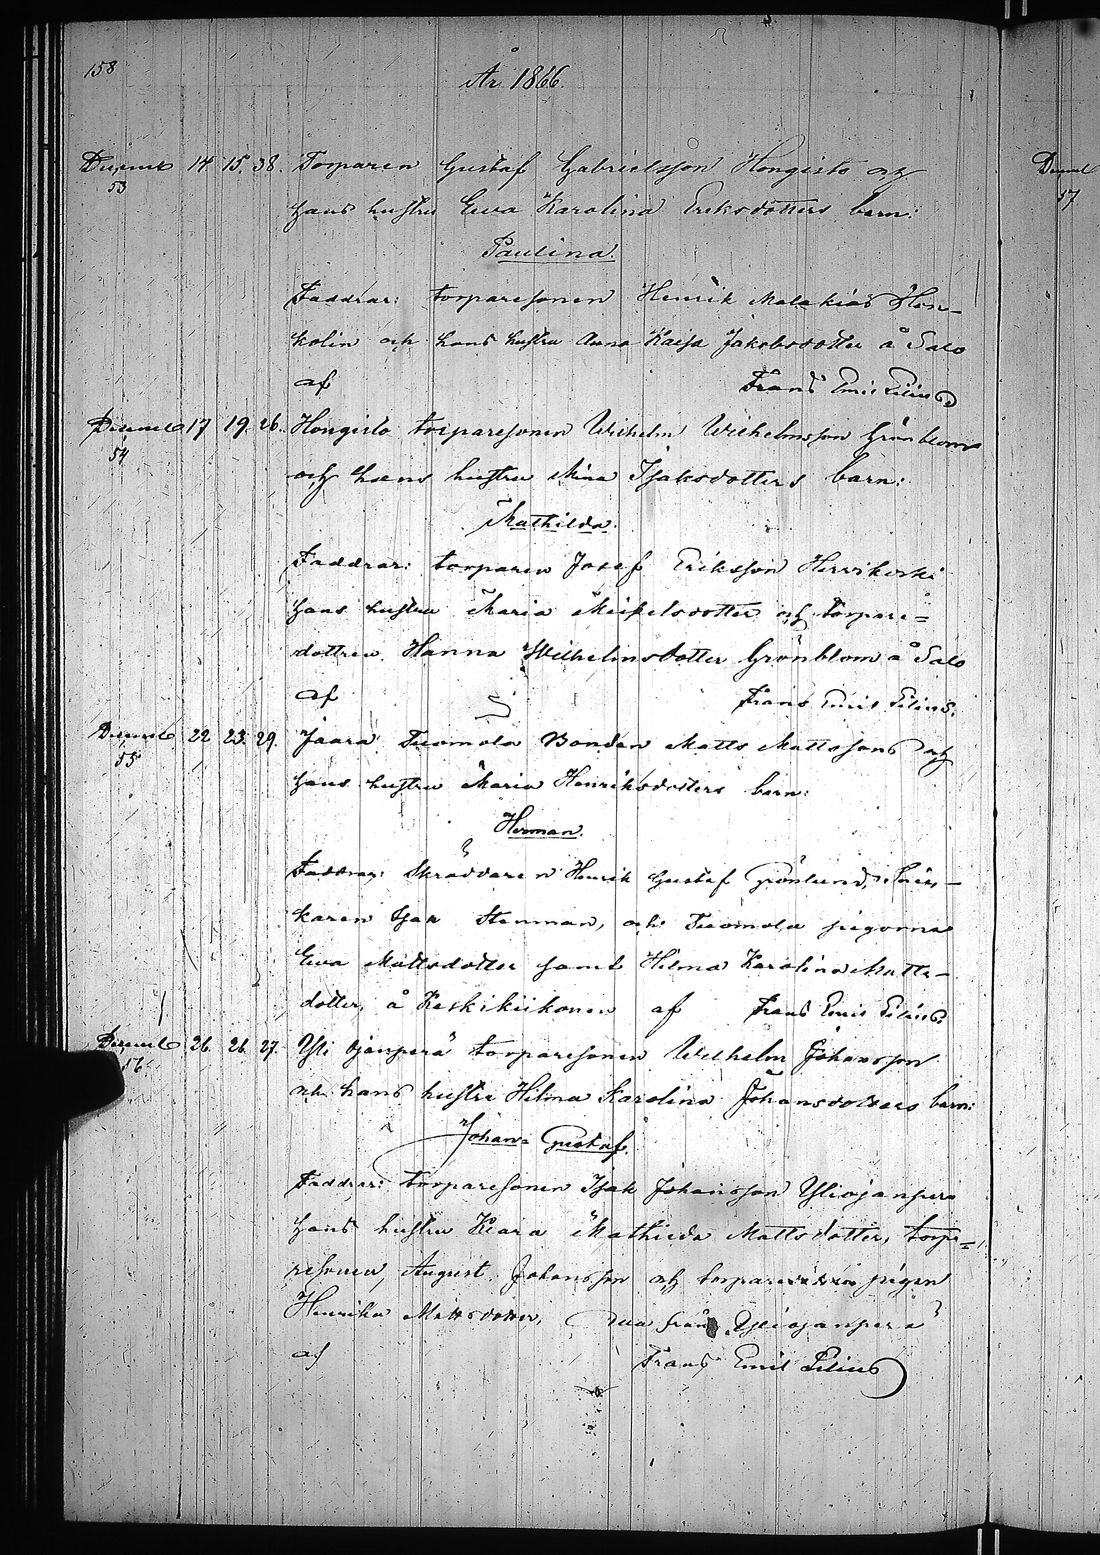 158
År 1866.
Decemb 14. 15. 38. Torparen Gustaf Gabrielsson Hongisto och
53
hans hustru Ewa Karolina Eriksdotters barn:
Paulina.
Faddrar: torparesonen Henrik Malakias Hon-
kolin och hans hustru Anna Kaisa Jakobsdotter å Salo
af Frans Emil Pilius
Decemb 17 19. 26. Hongisto torparesonen Wilhelm Wilhelmsson Grönblom
54
och hans hustru Mina Isaksdotters barn:
Mathilda.
Faddrar: torparen Josef Eriksson
hans hustru Maria Mickelsdotter och torpare-
dottren Hanna Wilhelmsdotter Grönblom å Salo
af Frans Emil Pilius.
Decemb 22 23. 29. Jaara Tuomola Bonden Matts Mattssons och
55
hans hustru Maria Henriksdotters barn:
Herman.
Faddrar: Skräddaren Henrik Gustaf Grönlund,
karen Isak Stenman, och Tuomola pigorna
Ewa Mattsdotter samt Hilma Karolina Matts-
dotter, å Keskikiikonen af Frans Emil Pilius
Decemb 26. 26. 27. Yli Ojanperä torparesonen Wilhelm Johansson
56.
och hans hustru Hilma Karolina Johansdotters barn:
Johan Gustaf.
Faddrar: torparesonen Isak Johansson Yliojanpera
hans hustru Klara Mathilda Mattsdotter, torpa-
resonen, August Johansson och torpare pigan
Henrika Mattsdotter, från Yliojanpera
af Frans Emil Pilius
Decemb
57